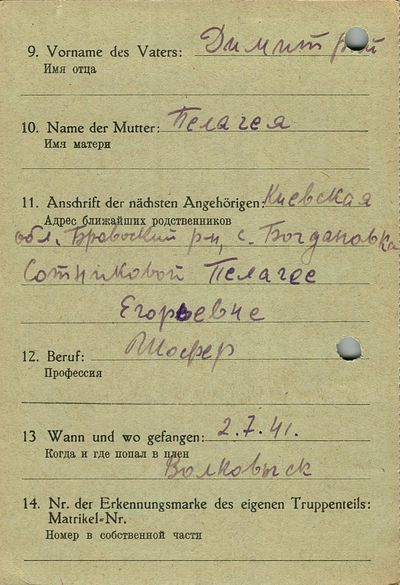 9. Vorname des Vaters: Димитрий
Имя отца
10. Name der Mutter: Пелагея
Имя матери
11. Anschrift der nächsten Angehörigen: Киевская
Адрес ближайших родственников
обл. Бровоский р-н, с. Богдановка
Сотниковой Пелагее
Егорьевне
12. Beruf: Шофер
Профессия
13 Wann und wo gefangen: 2.7.41.
Когда и где попал в плен
Волковыск
14. Nr. der Erkennungsmarke des eigenen Truppenteils:
Matrikel-Nr.
Номер в собственной части